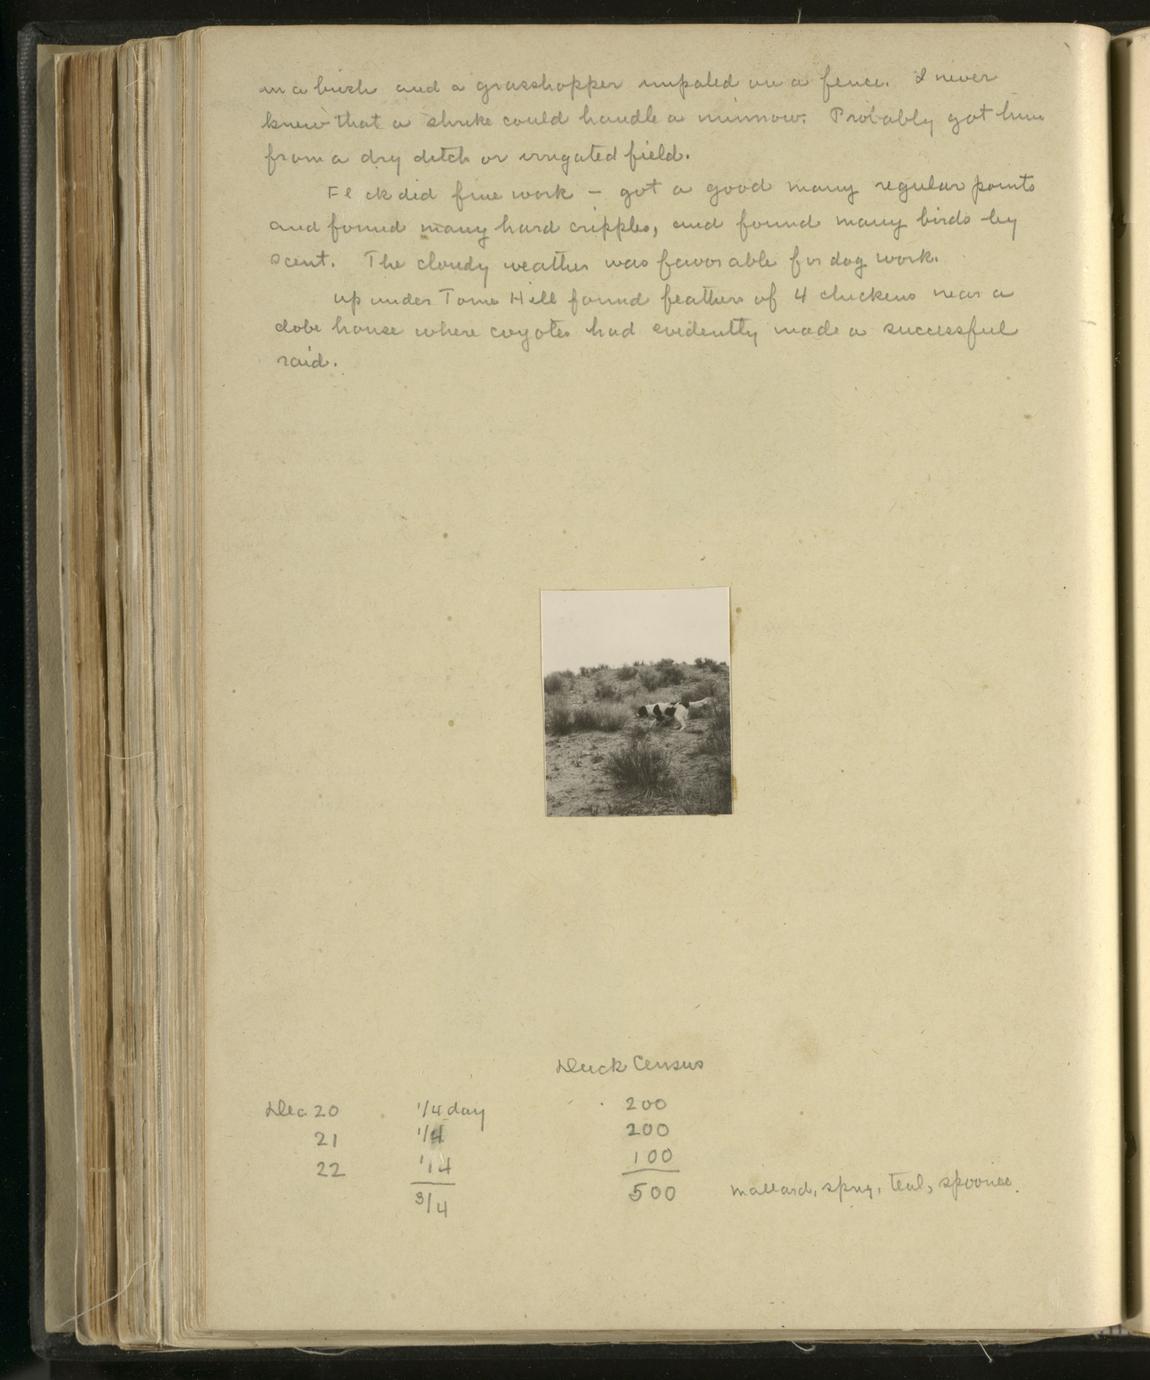 in a bush and a grasshopper impaled on a fence. I never
knew that a shrike could handle a minnow. Probably got him
from a dry ditch or irrigated field.
Flick did fine work – got a good many regular points
and found many hard cripples, and found many birds by
scent. The cloudy weather was favorable for dog work.
Up under Tome Hill found feathers of 4 chickens near a
dobe house where coyotes had evidently made a successful
raid.
Duck Census
Dec 20 1/4 day 200
21 1/4 200
22 1/4 100
3/4 500 mallard, sprig, teal, spoonies.